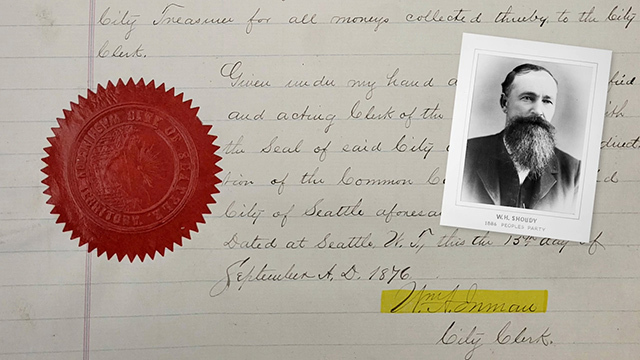 City Treasurer for all moneys collected thereby to the City
Clerk.
Given under my hand
and acting Clerk of the
the Seal of said City
tion of the Common
City of Seattle
Dated at Seattle, W. T., this the 13th day of
September A. D. 1876
Wm A. Inman
City Clerk.
W. H. SHOUDY
1886 PEOPLES PARTY